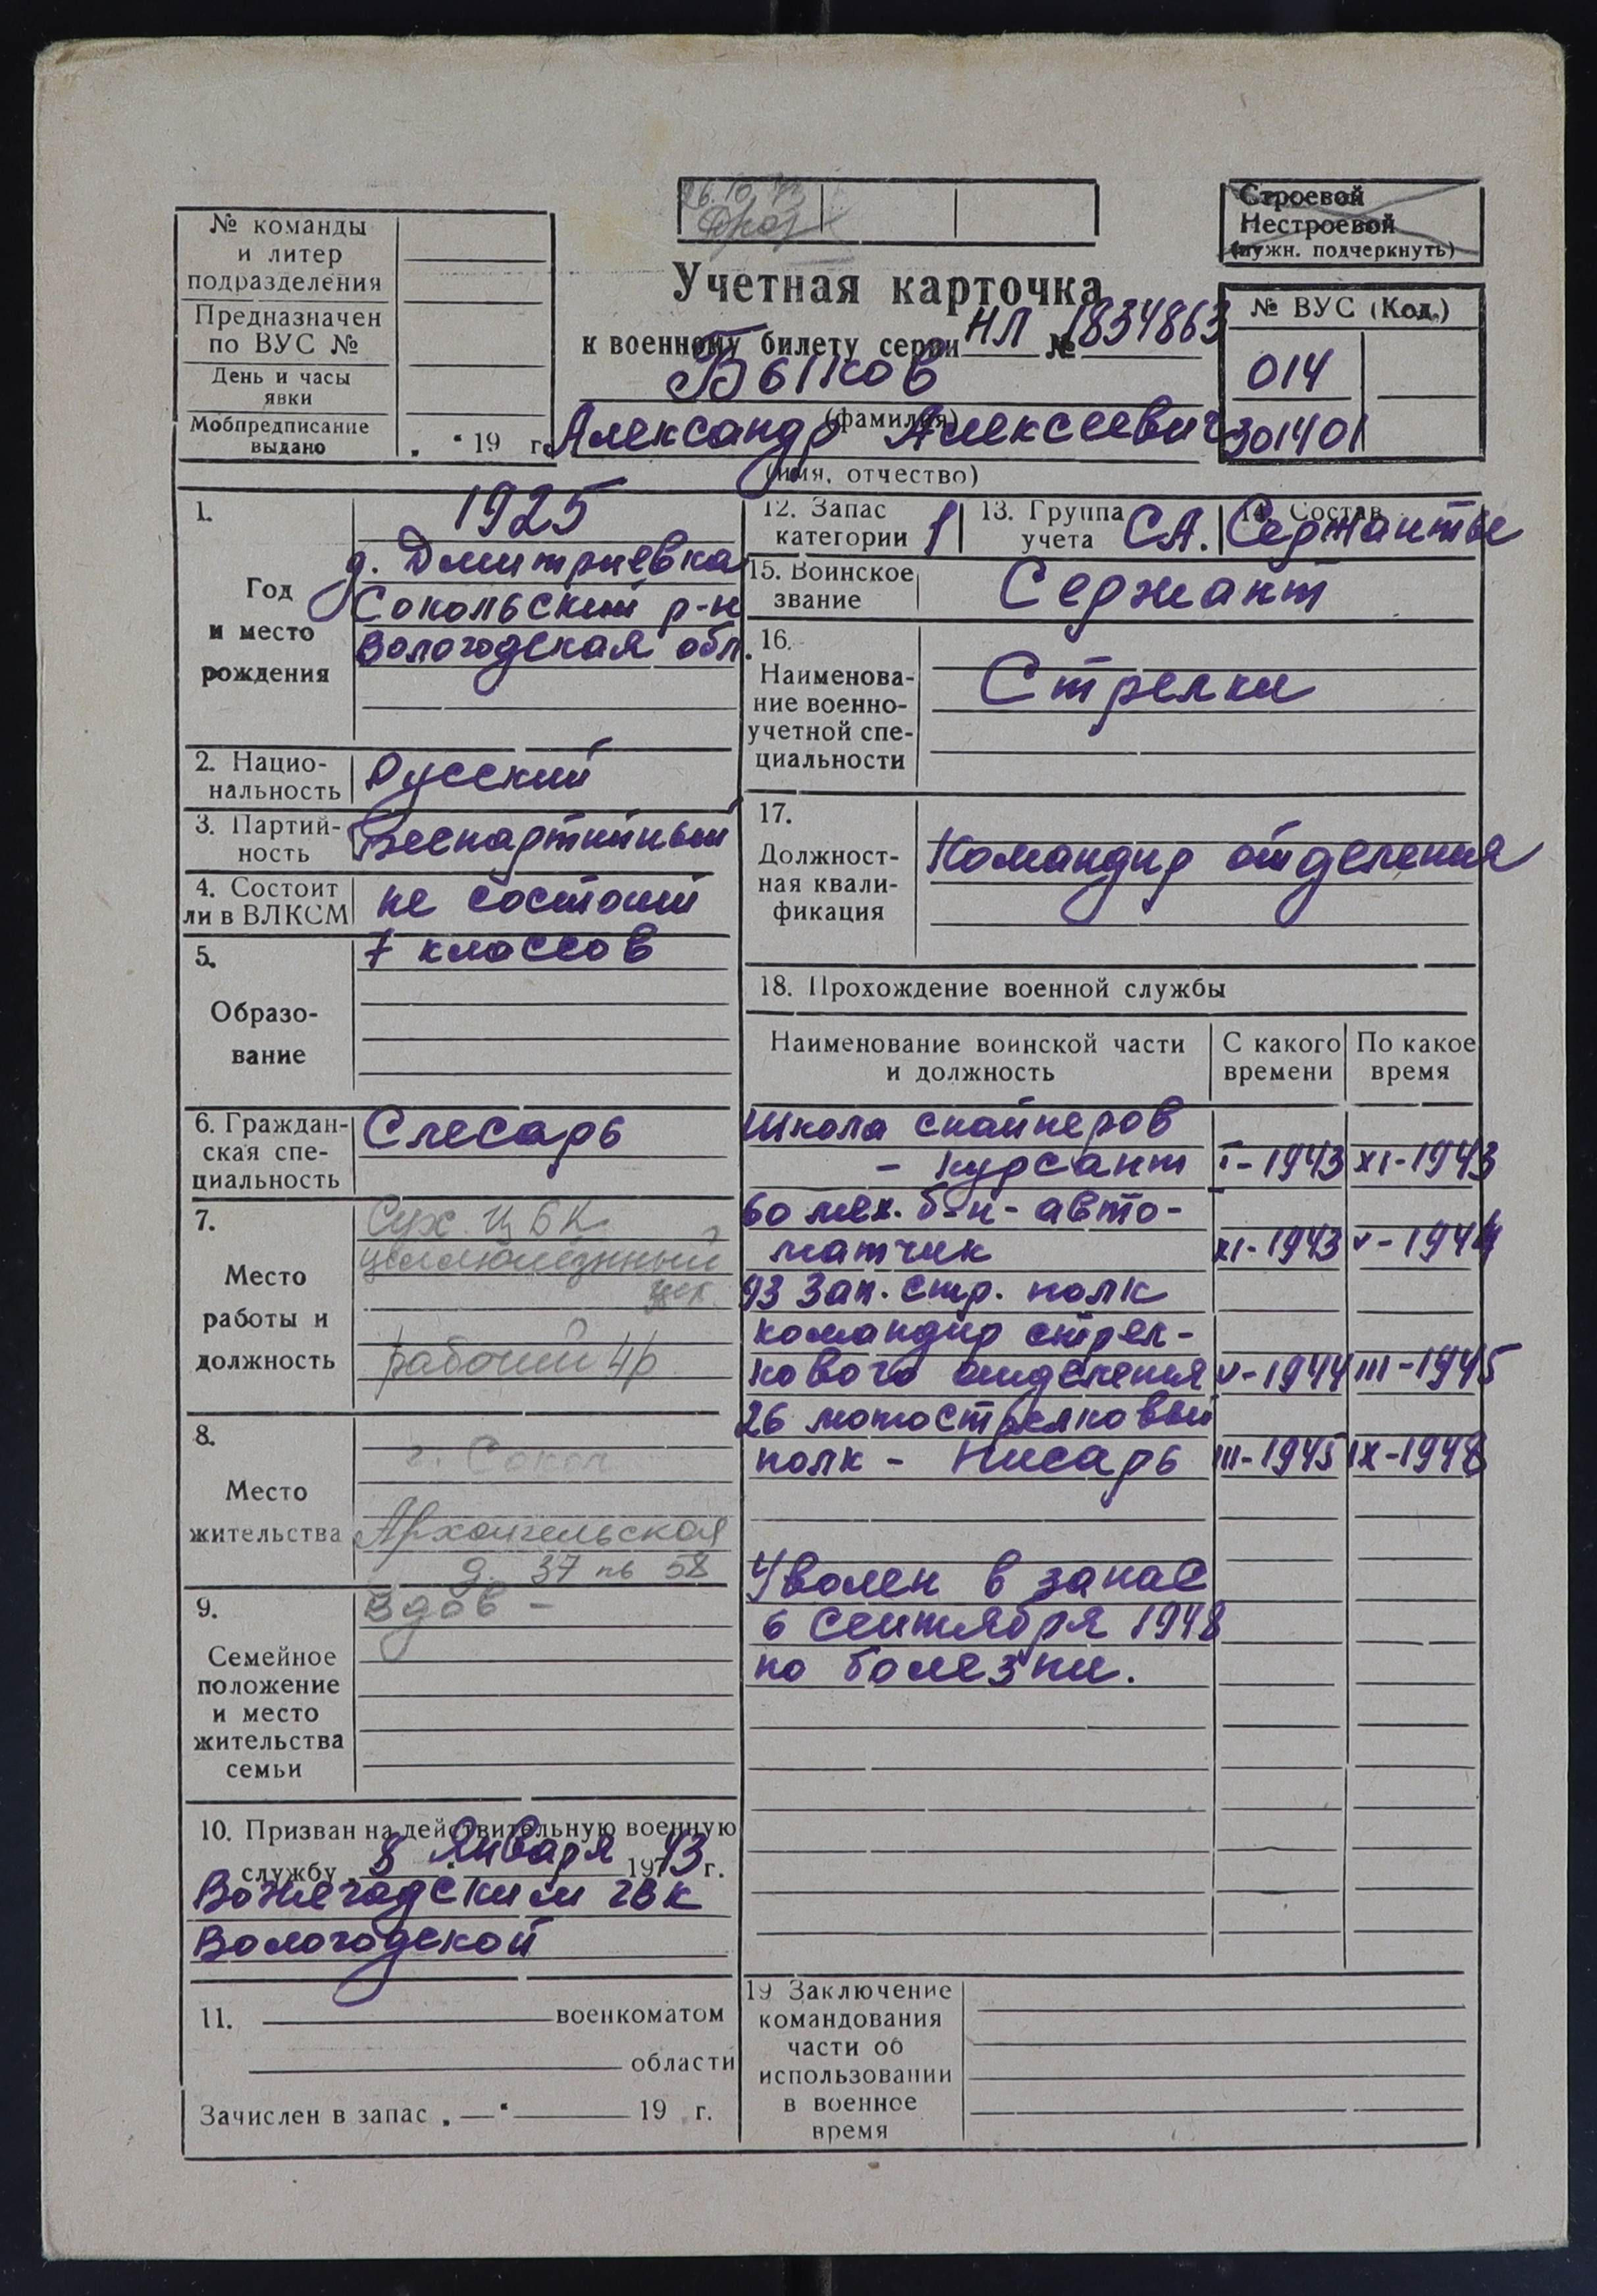 26.10.73
№ команды
и литер
подразделения
Предназначен
по ВУС №
День и часы
явки
Мобпредписание
выдано
„ “ 19 г.
Строевой
Нестроевой
(нужн. подчеркнуть)
Учетная карточка
к военному билету серии НЛ № 1834863
Быков
(фамилия)
Александр Алексеевич
(имя, отчество)
№ ВУС (Код.)
014
301401
1.
Год
и место
рождения
1925
д. Дмитриевка
Сокольский р-н
Вологодская обл.
2. Нацио-
нальность
Русский
3. Партий-
ность
Беспартийный
4. Состоит
ли в ВЛКСМ
не состоит
5.
Образо-
вание
7 классов
6. Граждан-
ская спе-
циальность
Слесарь
7.
Место
работы и
должность
Сух. ЦБК
целлюлозный
цех
рабочий 4р
8.
Место
жительства
г. Сокол
Архангельская
д. 37 кв 58
9.
Семейное
положение
и место
жительства
семьи
Вдов -
10. Призван на действительную военную
службу „ 8 “ Января 1943 г.
Вожегадским гвк
Вологодской
11. военкоматом
области
Зачислен в запас „—“ 19 г.
12. Запас
категории
1
13. Группа
учета
СА.
14. Состав
Сержанты
15. Воинское
звание
Сержант
16.
Наименова-
ние военно-
учетной спе-
циальности
Стрелки
17.
Должност-
ная квали-
фикация
Командир отделения
18. Прохождение военной службы
Наименование воинской части
и должность
С какого
времени
По какое
время
Школа снайперов
- курсант I-1943 XI-1943
60 мех. б-н - авто-
матчик XI-1943 V-1944
93 Зап. стр. полк
командир стрел-
кового отделения V-1944 III-1945
26 мотострелковый
полк - Писарь III-1945 IX-1948
Уволен в запас
6 сентября 1948
по болезни.
19 Заключение
командования
части об
использовании
в военное
время